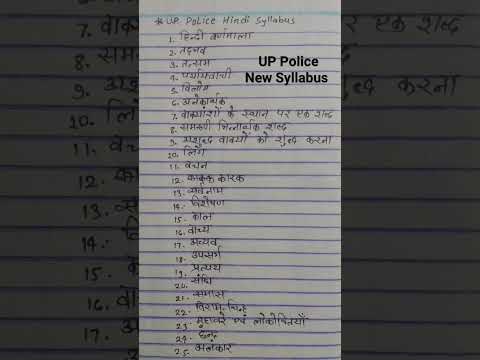 * UP Police Hindi Syllabus
1. हिन्दी वर्णमाला
2. तद्भव
3. तत्सम
4. पर्यायवाची
5. विलोम
6. अनेकार्थक
7. वाक्यांशों के स्थान पर एक शब्द
8. समरूपी भिन्नार्थक शब्द
9. अशुद्ध वाक्यों को शुद्ध करना
10. लिंग
11. वचन
12. कारक
13. सर्वनाम
14. विशेषण
15. काल
16. वाच्य
17. अव्यय
18. उपसर्ग
19. प्रत्यय
20. संधि
21. समास
22. विराम-चिन्ह
23. मुहावरे एवं लोकोक्तियाँ
24. छन्द
25. अलंकार
UP Police
New Syllabus